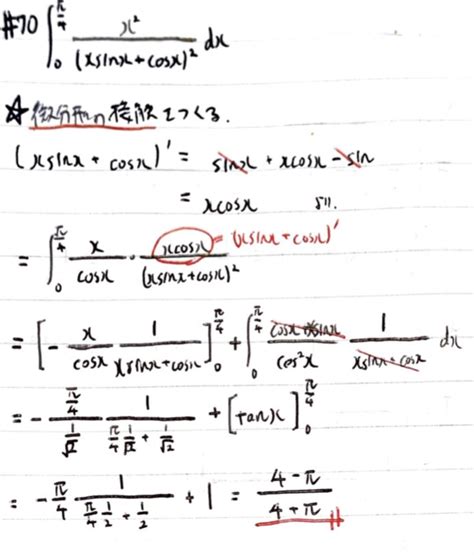 #70 ∫₀^{π/4} x²/(xsinx+cosx)² dx
☆ 微分形の接触をつくる.
(xsinx + cosx)' = sinx + xcosx - sin
= xcosx より.
= ∫₀^{π/4} x/cosx · xcosx/(xsinx+cosx)² = (xsinx+cosx)'
= [- x/cosx 1/(xsinx+cosx)]₀^{π/4} + ∫₀^{π/4} (cosx+xsinx)/cos²x 1/(xsinx+cosx) dx
= - (π/4)/(1/√2) 1/(π/4 1/√2 + 1/√2) + [tanx]₀^{π/4}
= - π/4 1/(π/4 1/2 + 1/2) + 1 = (4-π)/(4+π)